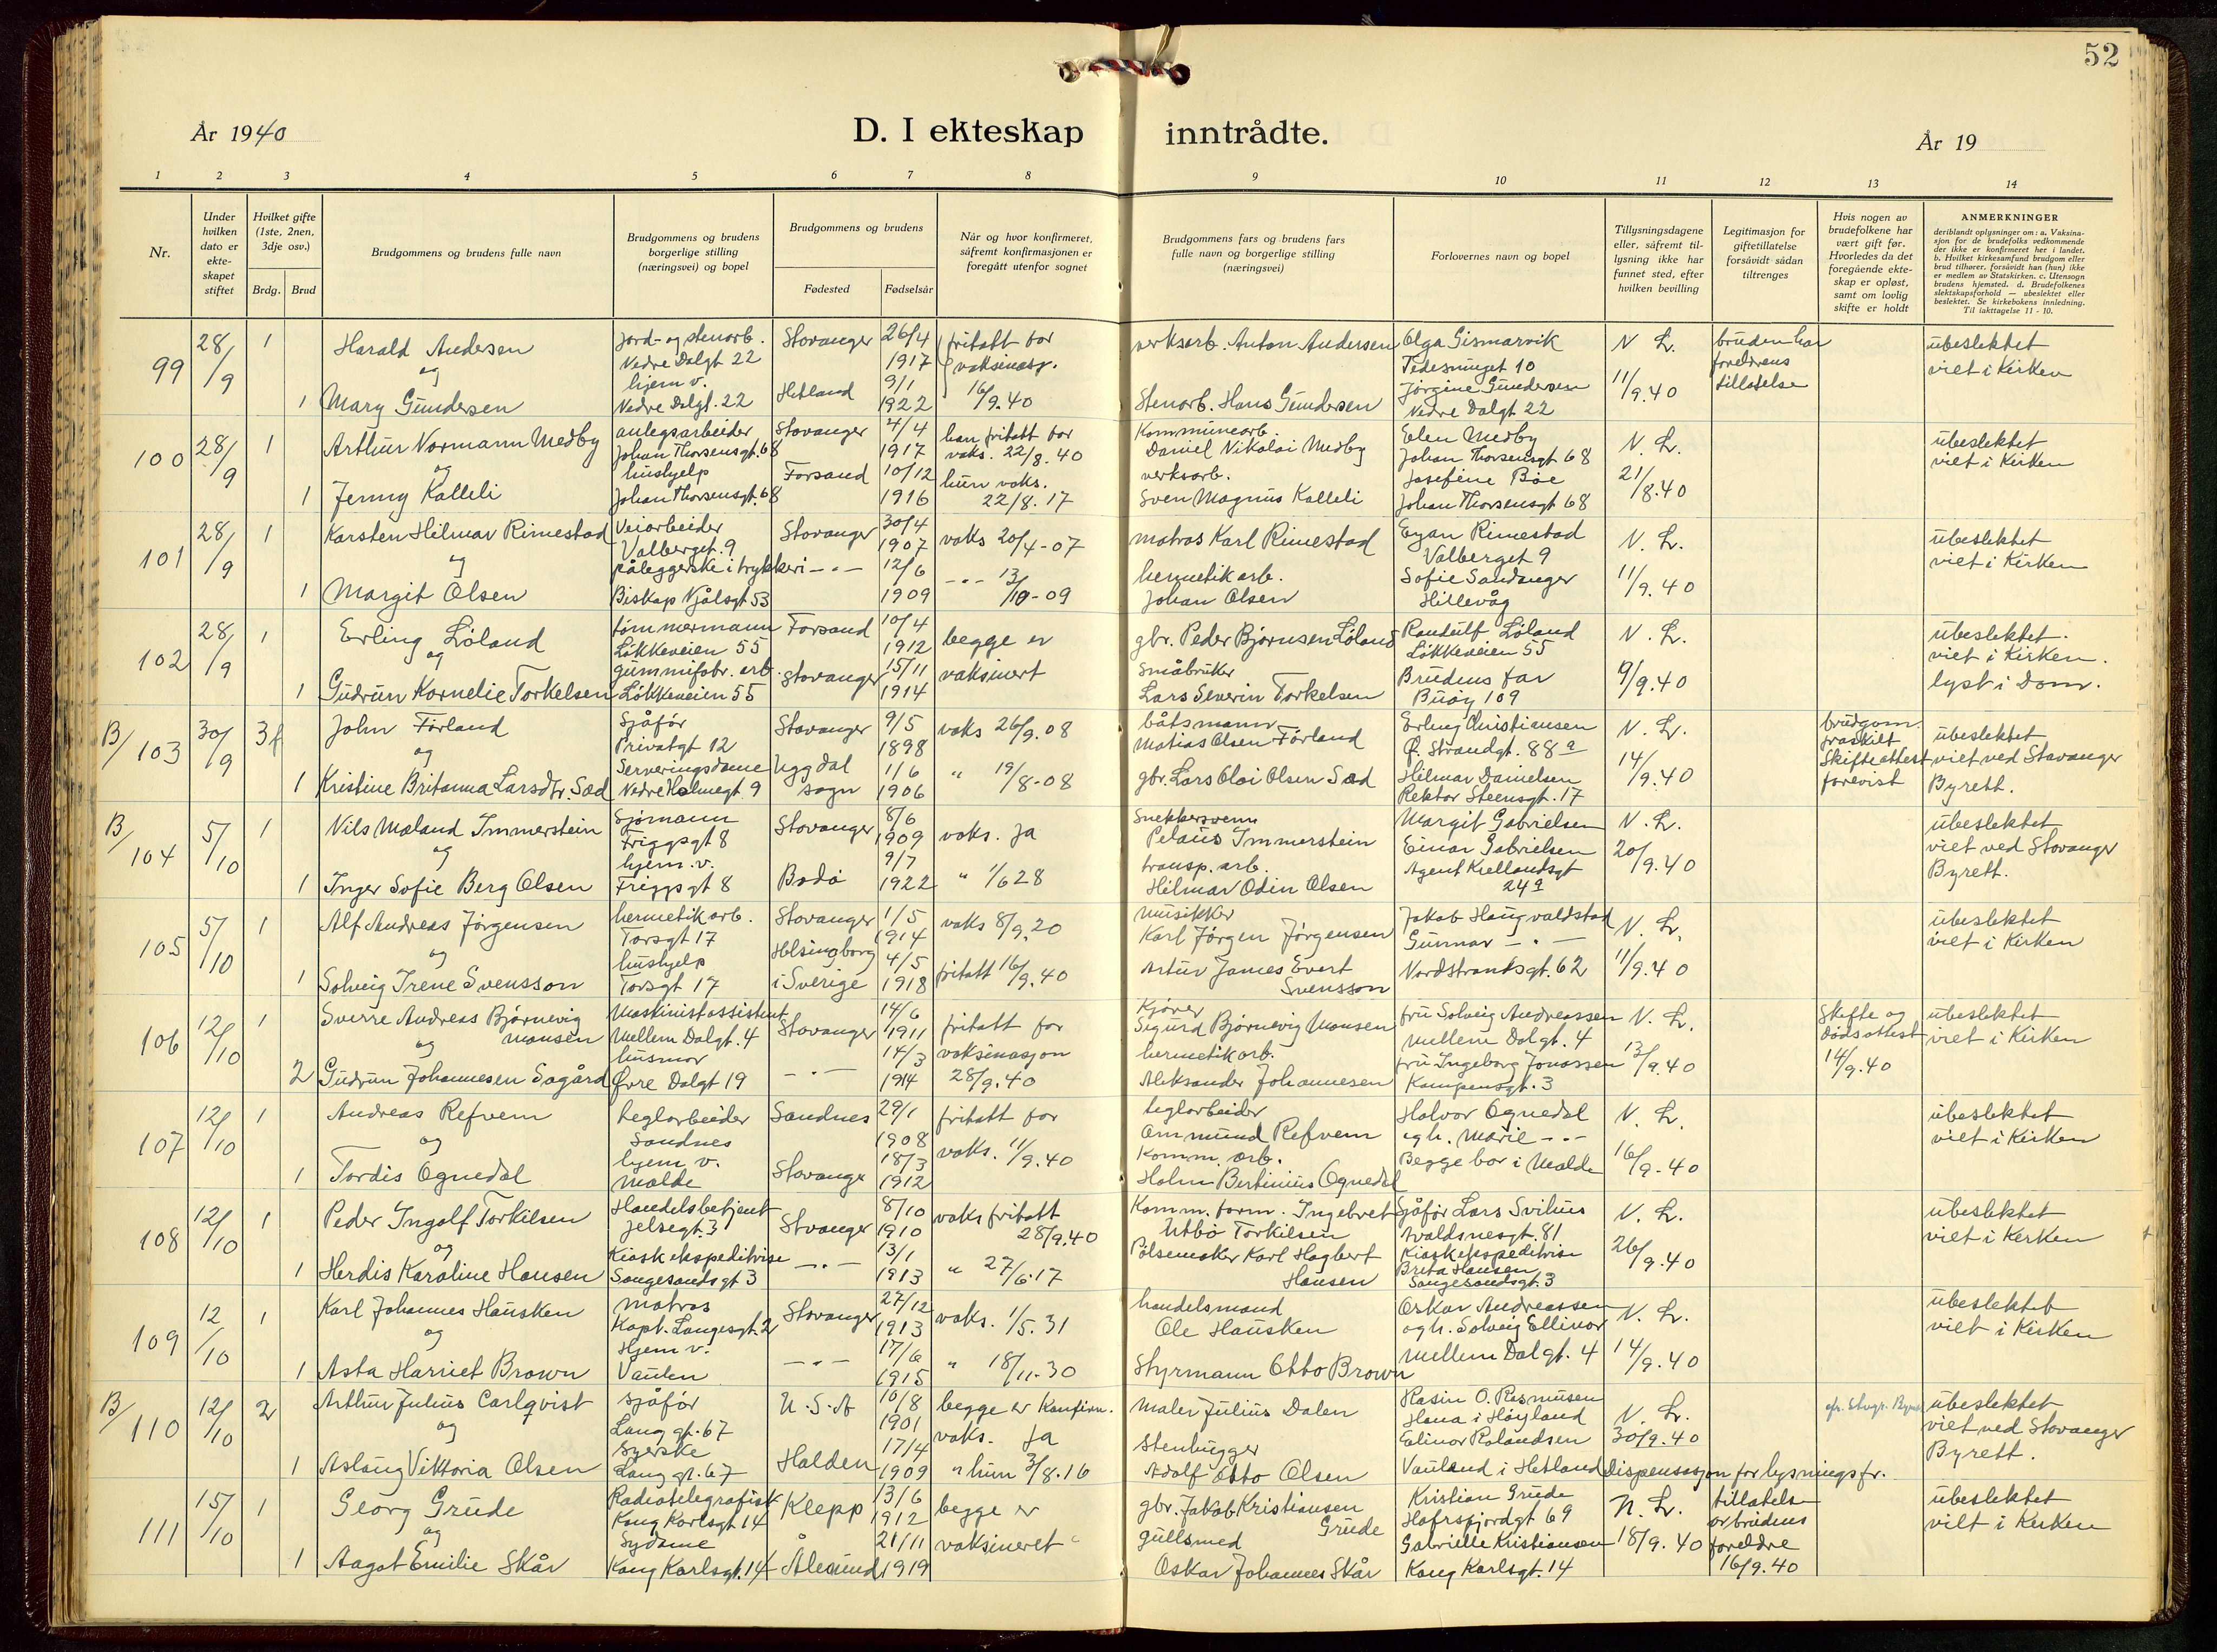 52
År 1940
D. I ekteskap inntrådte.
År 19
1 2 3 4 5 6 7 8 9 10 11 12 13 14
Nr.
Under hvilken dato er ekte-skapet stiftet
Hvilket gifte (1ste, 2nen, 3dje osv.)
Brdg. Brud
Brudgommens og brudens fulle navn
Brudgommens og brudens borgerlige stilling (næringsvei) og bopel
Brudgommens og brudens
Fødested Fødselsår
Når og hvor konfirmeret, såfremt konfirmasjonen er foregått utenfor sognet
Brudgommens fars og brudens fars fulle navn og borgerlige stilling (næringsvei)
Forlovernes navn og bopel
Tillysningsdagene eller, såfremt til-lysning ikke har funnet sted, efter hvilken bevilling
Legitimasjon for giftetillatelse forsåvidt sådan tiltrenges
Hvis nogen av brudefolkene har vært gift før. Hvorledes da det foregående ekte-skap er opløst, samt om lovlig skifte er holdt
ANMERKNINGER
deriblandt oplysninger om: a. Vaksina-sjon for de brudefolks vedkommende der ikke er konfirmeret her i landet. b. Hvilket kirkesamfund brudgom eller brud tilhører, forsåvidt han (hun) ikke er medlem av Statskirken. c. Utensogn brudens hjemsted. d. Brudefolkenes slektskapsforhold — ubeslektet eller beslektet. Se kirkebokens innledning. Til iakttagelse 11 - 10.
99 28/9 1 Harald Andersen jord- og stenarb. Nedre Dalgt 22 Stavanger 26/4 1917 fritatt for vaksinasj. verksarb. Anton Andersen Olga Gismarvik 10 N. L. bruden har foreldrens tillatelse ubeslektet viet i Kirken
og
1 Mary Gundersen hjem v. Nedre Dalgt. 22 Hetland 9/1 1922 16/9.40 Stenarb. Hans Gundersen Jørgine Gundersen Nedre Dalgt 22 11/9.40
100 28/9 1 Arthur Normann Medby anlegsarbeider Johan Thorsensgt. 68 Stavanger 4/4 1917 han fritatt for vaks. 22/8.40 Kommunearb. Daniel Nikolai Medby Elen Medby Johan Thorsensgt 68 N. L. ubeslektet viet i Kirken
og
1 Jenny Kalleli hushjelp Johan Thorsensgt. 68 Forsand 10/12 1916 hun vaks. 22/8.17 verksarb. Sven Magnus Kalleli Josefine Bøe Johan Thorsensgt 68 21/8.40
101 28/9 1 Karsten Hilmar Rimestad Veiarbeider Valberget. 9 Stavanger 30/4 1907 vaks 20/4-07 matros Karl Rimestad Rimestad Valberget 9 N. L. ubeslektet viet i Kirken
og
1 Margit Olsen påleggerske i trykkeri Biskop Njålsgt 53 -"- 12/6 1909 -"- 13/10-09 hermetikarb. Johan Olsen Sofie Sandanger Hillevåg 11/9.40
102 28/9 1 Erling Løland tømmermann Løkkeveien 55 Forsand 10/4 1912 begge er vaksinert gbr. Peder Bjørnsen Løland Randulf Løland Løkkeveien 55 N. L. ubeslektet. viet i Kirken. lyst i Dom.
og
1 Gudrun Kornelie Torkelsen gummifabr. arb. Løkkeveien 55 Stavanger 15/11 1914 Småbruker Lars Severin Torkelsen Brudens far Buøy 109 9/9.40
B/103 30/9 3 f John Førland Sjåfør Privatgt 12 Stavanger 9/5 1898 vaks 26/9.08 båtsmann Matias Olsen Førland Erling Christiansen Ø. Strandgt. 88 a N. L. brudgom. fraskilt Skifteattest forevist ubeslektet viet ved Stavanger Byrett.
og
1 Kristine Britanna Larsdtr. Sæd Serveringsdame Nedre Holmegt 9 Uggdal sogn 1/6 1906 " 19/8-08 gbr. Lars Olai Olsen Sæd Hilmar Danielsen Rektor Steensgt. 17 14/9.40
B/104 5/10 1 Nils Maland Immerstein Sjømann Friggsgt 8 Stavanger 8/6 1909 vaks. ja Snekkersvenn Immerstein Margit Gabrielsen N. L. ubeslektet viet ved Stavanger Byrett.
og
1 Inger Sofie Berg Olsen hjem. v. Friggsgt 8 Bodø 9/7 1922 " 1/6 28 transp. arb. Hilmar Odin Olsen Einar Gabrielsen Agent Kiellandsgt 24 a 20/9.40
105 5/10 1 Alf Andreas Jørgensen hermetikarb. Torsgt 17 Stavanger 1/5 1914 vaks 8/9.20 musikker Karl Jørgen Jørgensen Jakob Haugvaldstad N. L. ubeslektet viet i Kirken
og
1 Solveig Irene Svensson hushjelp Torsgt 17 Helsingborg i Sverige 4/5 1918 fritatt 16/9.40 Artur James Evert Svensson Gunnar -"- Nordstrandsgt. 62 11/9.40
106 12/10 1 Sverre Andreas Bjørnevig Monsen Maskinistassistent Mellem Dalgt. 4 Stavanger 14/6 1911 fritatt for vaksinasjon 28/9.40 Kjører Sigurd Bjørnevig Monsen fru Solveig Andreassen Mellem Dalgt. 4 N. L. Skifte og dødsattest 14/9.40 ubeslektet viet i Kirken
og
2 Gudrun Johannesen Sagård husmor Øvre Dalgt 19 -"- 14/3 1914 hermetikarb. Aleksander Johannesen fru Ingeborg Jonassen Kampensgt. 3 13/9.40
107 12/10 1 Andreas Refvem teglarbeider Sandnes Sandnes 29/1 1908 fritatt for vaks. 11/9.40 teglarbeider Ommund Refvem Halvor Ognedal N. L. ubeslektet viet i Kirken
og
1 Tordis Ognedal hjem v. Malde Stavanger 18/3 1912 Komm. arb. Holm Bertinius Ognedal ogh. Marie -"- Begge bor i Malde 16/9-40
108 12/10 1 Peder Ingolf Torkilsen Handelsbetjent Jelsegt. 3 Stvanger 8/10 1910 vaks fritatt 28/9.40 Komm. form. Ingebret Utbø Torkilsen Sjåfør Lars Svihus Waldsnesgt. 81 N. L. ubeslektet viet i Kirken
og
1 Herdis Karoline Hansen Kioskekspeditrise Sangesandsgt 3 -"- 13/1 1913 " 27/6.17 Pølsemaker Karl Hagbert Hansen Kioskekspeditrise Brita Hansen Sangesandsgt. 3 26/9.40
109 12/10 1 Karl Johannes Hausken matros Kapt. Langesgt. 2 Stavanger 27/12 1913 vaks. 1/5.31 handelsmand Ole Hausken Oskar Andreassen N. L. ubeslektet viet i Kirken
og
1 Asta Harriet Brown Hjem v. Vaulen -"- 17/6 1915 " 18/11-30 Styrmann Otto Brown ogh. Solveig Ellinor Mellem Dalgt. 4 14/9.40
B/110 12/10 2 Arthur Julius Carlqvist sjåfør Lang gt. 67 U.S.A 10/8 1901 begge er Konfirm. vaks. ja Maler Julius Dalen Rasin O. Rasmusen Hana i Høyland N. L. ubeslektet viet ved Stavanger Byrett.
og
1 Aslaug Viktoria Olsen Syerske Lang gt. 67 Halden 17/4 1909 " hun 3/8.16 Stenhugger Adolf Otto Olsen Elinor Rolandsen Vauland i Hetland 30/9.40 Dispensasjon for lysningsfr.
111 15/10 1 Georg Grude Radiotelegrafist Kong Karlsgt 14 Klepp 13/6 1912 begge er vaksineret gbr. Jakob Kristiansen Grude Kristian Grude Hafrsfjordgt 69 N. L. tillatelse av brudens foreldre 16/9.40 ubeslektet viet i Kirken
og
1 Aagot Emilie Skår Sydame Kong Karlsgt. 14 Ålesund 21/11 1919 gullsmed Oskar Johannes Skår Gabrielle Kristiansen Kong Karlsgt. 14 18/9.40